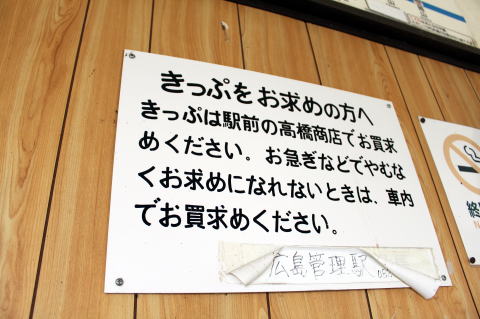 きっぷをお求めの方へ
きっぷは駅前の高橋商店でお買求
めください。お急ぎなどでやむな
くお求めになれないときは、車内
でお買求めください。
広島管理駅
終